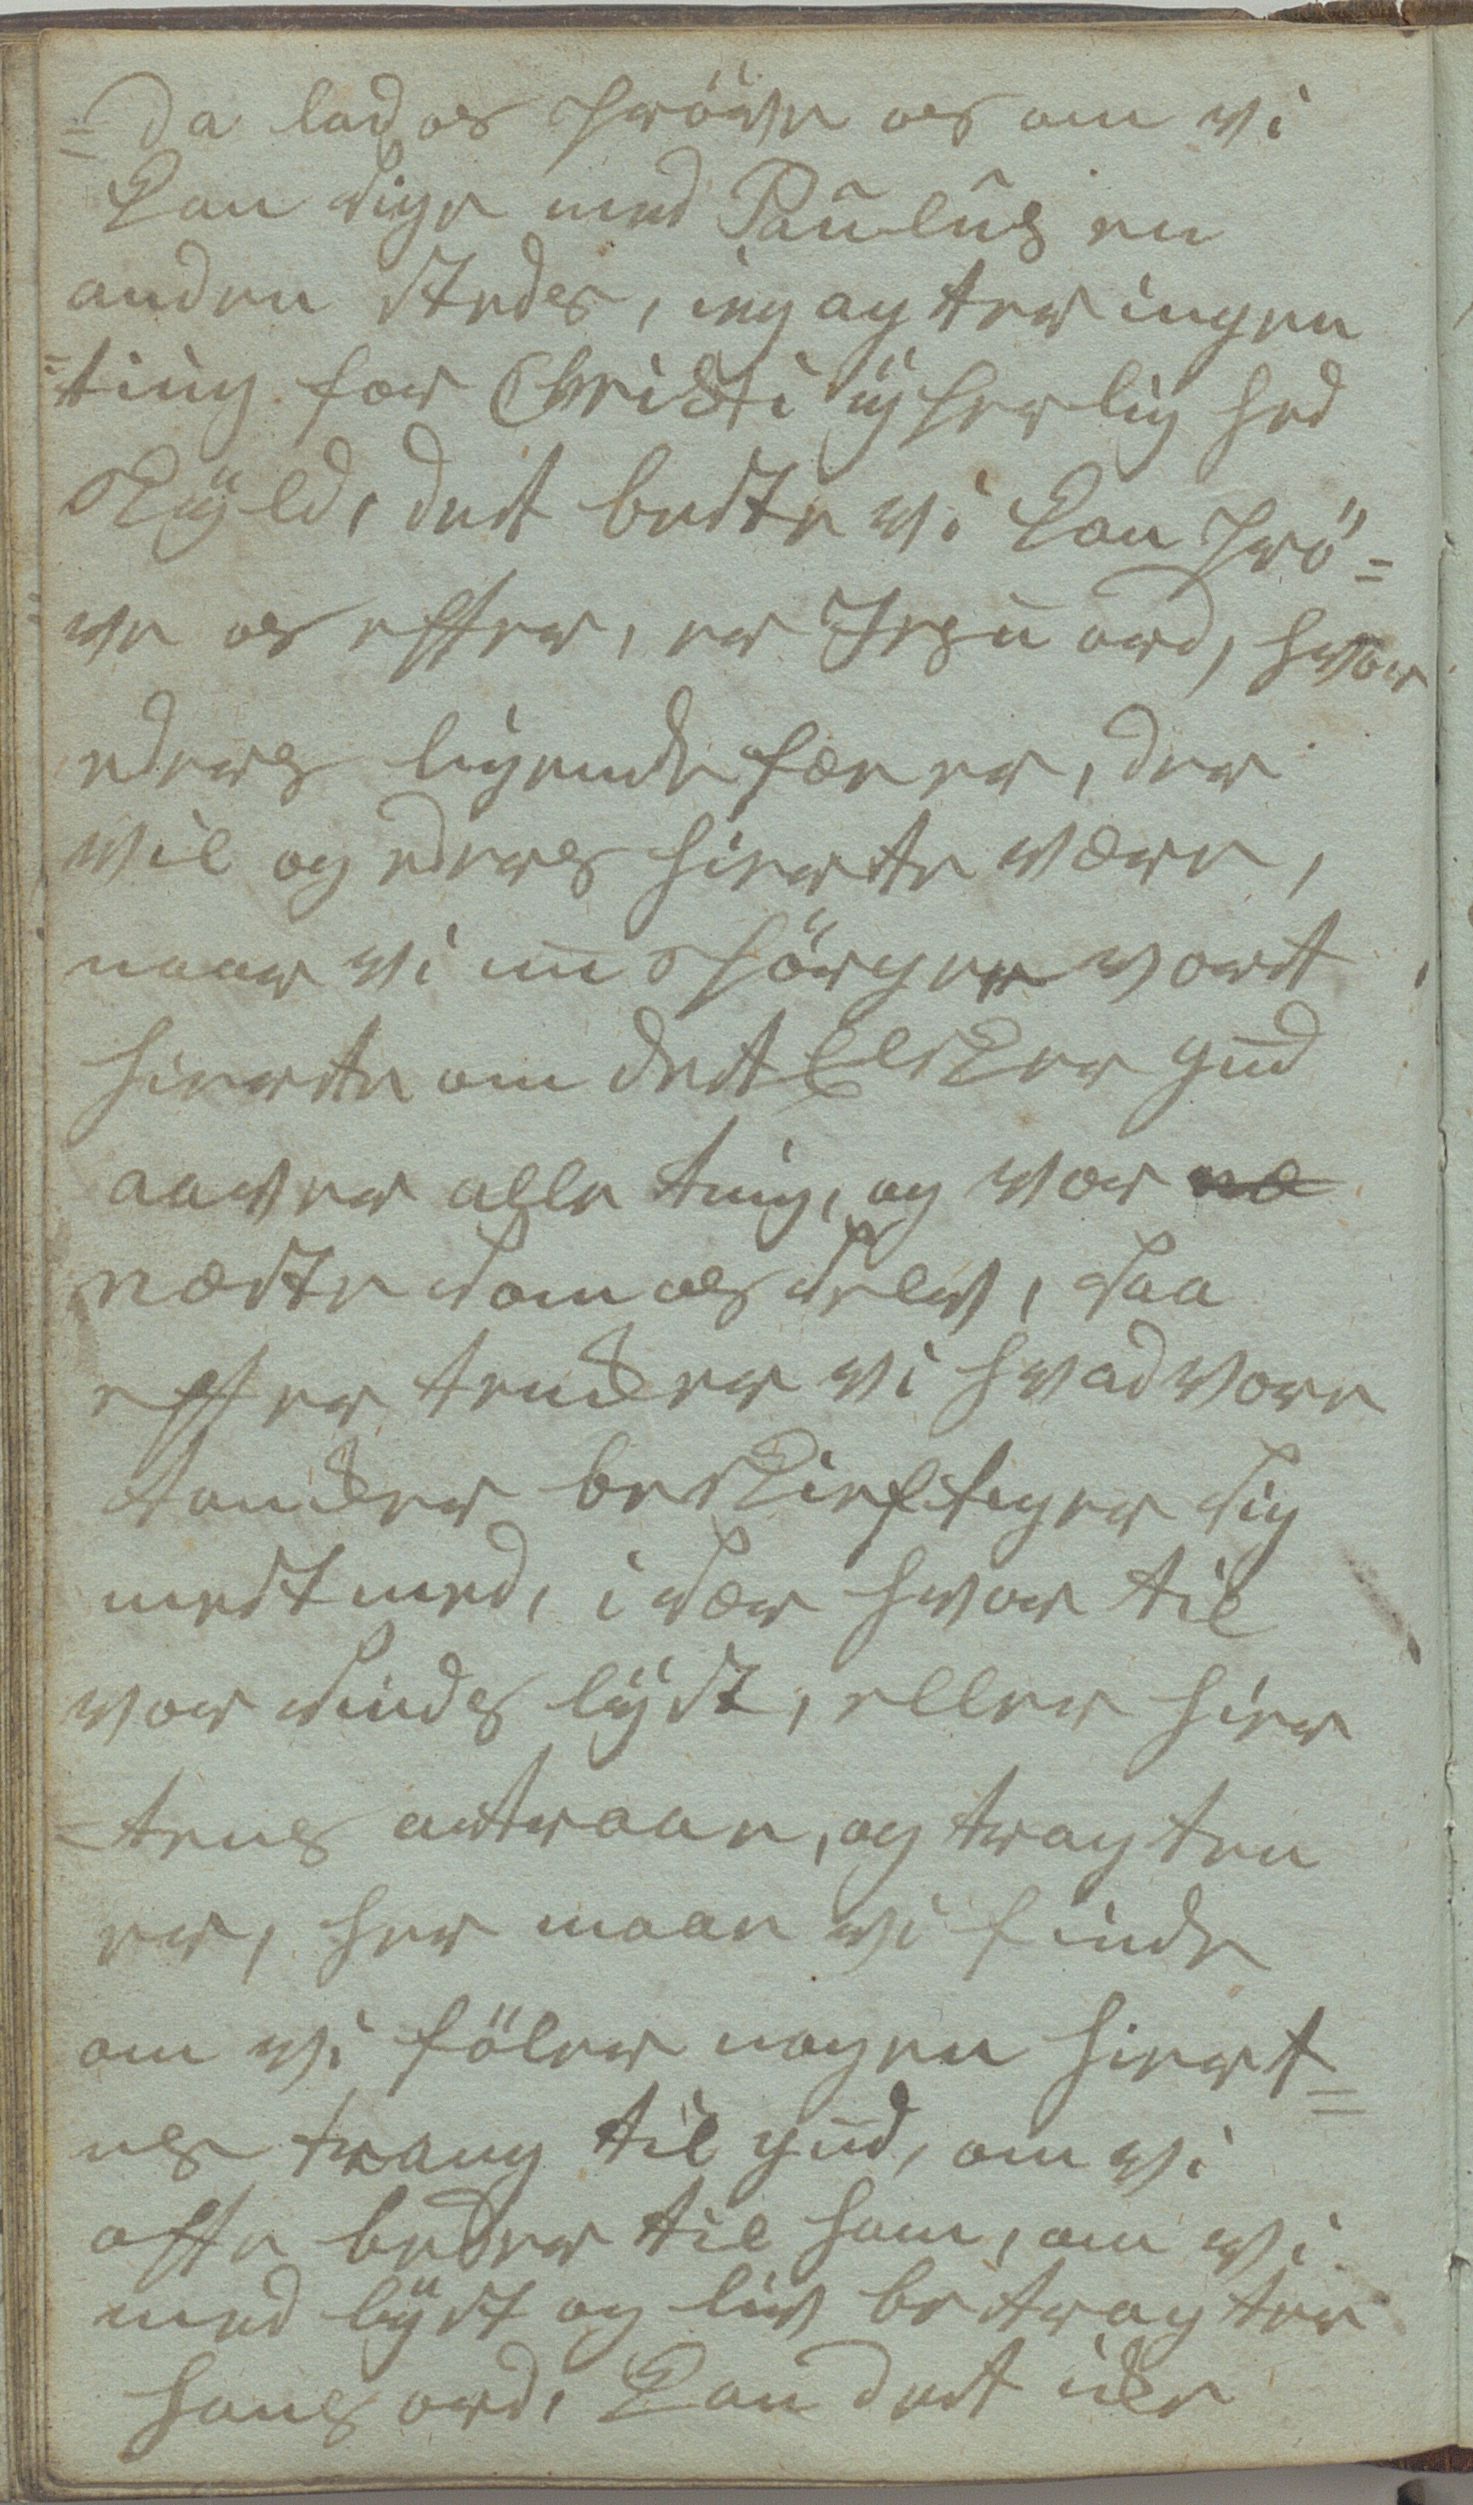 = Da lad os pröve os om vi
kan sige med Paulus en
anden stedes, ieg agter ingen
=ting for Christi ÿperlig hed
skÿld, det beste vi kan prö=
ve os efter, er Jesu ord, hvor
eders ligende fæ er, der
vil og eders hierte være,
naar vi nu spörger vort
hierte om det Elsker gud
aaver alle ting, og vor næ
næste som os selv, saa
efter tenker vi hvad vore
tanker beskieftiger sig
mest med, i sær hvor til
vor sinds lÿst, eller hier
=tens attraae, og tragten
er, her maae vi finde
om vi föler nogen hiert=
ns trang til gud, om vi
ofte beder til ham, om vi
med lÿst og liv betragter
hans ord, kan det ike